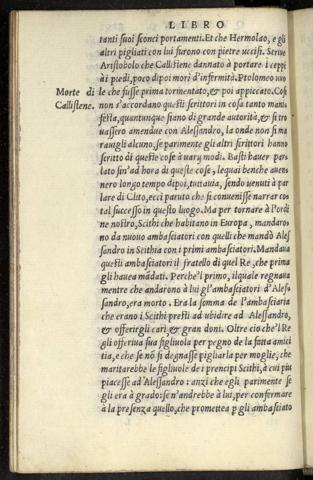 LIBRO
tanti suoi sconci portamenti. Et che Hermolao, e gli
altri pigliati con lui furono con pietre uccisi. Scriue
Aristobolo che Callistene dannato à portare i ceppi
à i piedi, poco dipoi morì d'infermità. Ptolomeo uuo
Morte di le che fusse prima tormentato, & poi appiccato. Cosi
Callistene. non s'accordano questi scrittori in cosa tanto mani
festa, quantunque siano di grande autorità, & si tro
uassero amendue con Alessandro, la onde non si ma
rauigli alcuno, se parimente gli altri scrittori hanno
scritto di queste cose à uarij modi. Basti hauer par
lato sin'ad hora di queste cose, lequai benche auen
nero longo tempo dipoi, tuttauia, sendo uenuti à par
lare di Clito, ecci paruto che si conuenisse narrar co
tal successo in questo luogo. Ma per tornare à l'ordi
ne nostro, Scithi che habitano in Europa, mandaro
no da nuouo ambasciatori con quelli che mandò Ales
sandro in Scithia con i primi ambasciatori. Mandaua
questi ambasciatori il fratello di quel Re, che prima
gli hauea mādati. Perche'l primo, ilquale regnaua
mentre che andarono à lui gl'ambasciatori d'Ales
sandro, era morto. Era la somma de l'ambasciaria
che erano i Scithi presti ad ubidire ad Alessandro,
& offerirgli cari, & gran doni. Oltre cio che'l Re
gli offeriua sua figliuola per pegno de la fatta amici
tia, e che se nō si degnasse pigliarla per moglie, che
maritarebbe le figliuole de i prencipi Scithi, à cui piu
piacesse ad Alessandro: anzi che egli parimente se
gli era à grado: se n'andrebbe à lui, per confirmare
à la presenza quello, che promettea p gli ambasciato